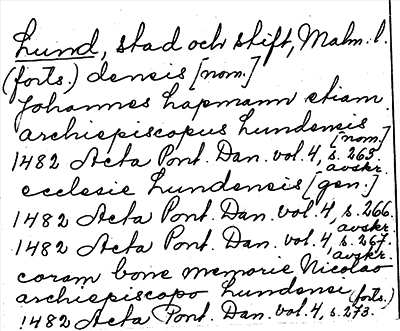 Lund, stad och stift, Malm. l.
(forts.) densis [nom.]
Johannes Lapmann etiam
archiepiscopus Lundensis
[nom]
1482 Acta Pont. Dan. vol. 4, s. 265.
avskr.
ecclesie Lundensis [gen.]
1482 Acta Pont. Dan. vol. 4, s. 266.
avskr.
1482 Acta Pont. Dan. vol. 4, s. 267.
avskr.
coram bone memorie Nicolao
archiepiscopo Lundensi (forts.)
1482 Acta Pont. Dan. vol. 4, s. 273.